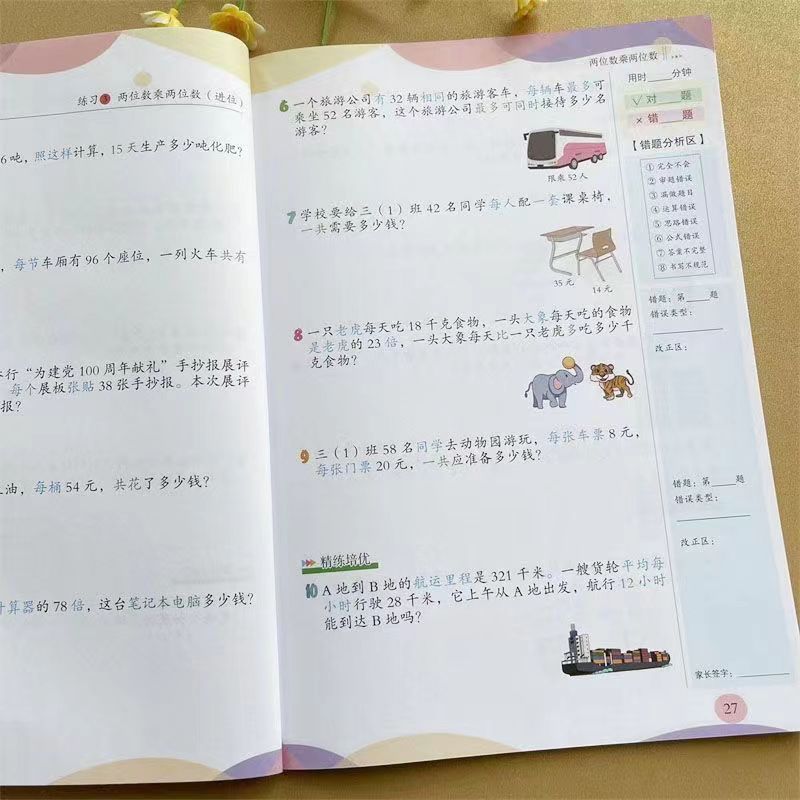 练习3 两位数乘两位数（进位）
6吨，照这样计算，15天生产多少吨化肥？
，每节车厢有96个座位，一列火车共有
行“为建党100周年献礼”手抄报展评
每个展板张贴38张手抄报。本次展评
报？
油，每桶54元，共花了多少钱？
计算器的78倍，这台笔记本电脑多少钱？
两位数乘两位数
6 一个旅游公司有32辆相同的旅游客车，每辆车最多可
乘坐52名游客，这个旅游公司最多可同时接待多少名
游客？
限乘52人
7 学校要给三（1）班42名同学每人配一套课桌椅，
一共需要多少钱？
35元
14元
8 一只老虎每天吃18千克食物，一头大象每天吃的食物
是老虎的23倍，一头大象每天比一只老虎多吃多少千
克食物？
9 三（1）班58名同学去动物园游玩，每张车票8元，
每张门票20元，一共应准备多少钱？
精练培优
10 A地到B地的航运里程是321千米。一艘货轮平均每
小时行驶28千米，它上午从A地出发，航行12小时
能到达B地吗？
用时____分钟
√ 对____题
× 错____题
【错题分析区】
① 完全不会
② 审题错误
③ 漏做题目
④ 运算错误
⑤ 思路错误
⑥ 公式错误
⑦ 答案不完整
⑧ 书写不规范
错题：第____题
错误类型：
改正区：
错题：第____题
错误类型：
改正区：
家长签字：
27